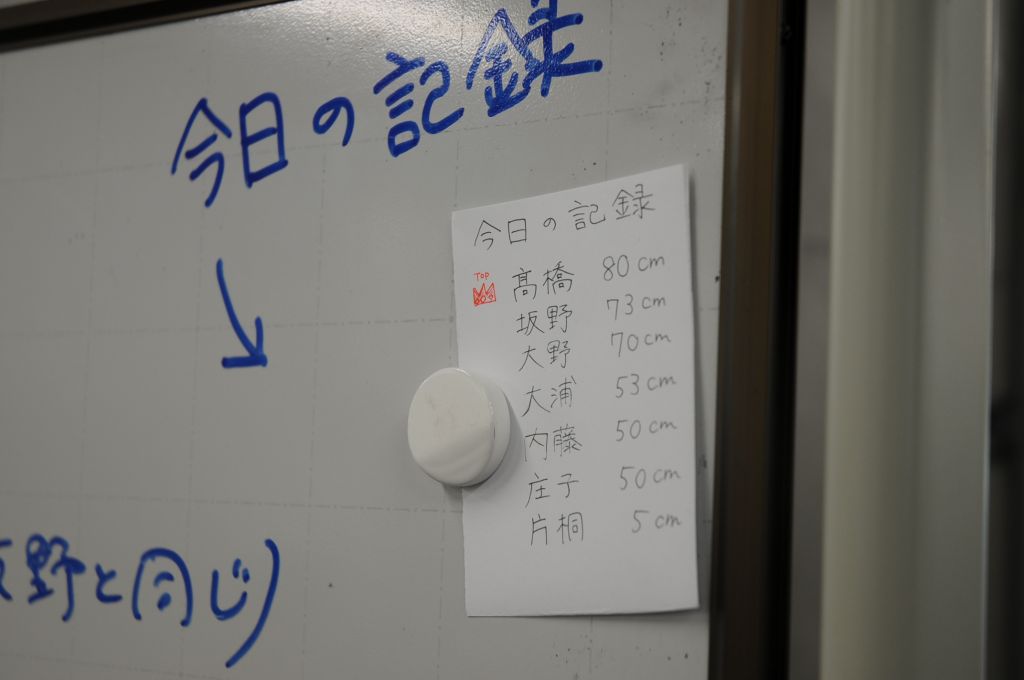 今日の記録
今日の記録
TOP
髙橋 80cm
坂野 73cm
大野 70cm
大浦 53cm
内藤 50cm
庄子 50cm
片桐 5cm
野と同じ)